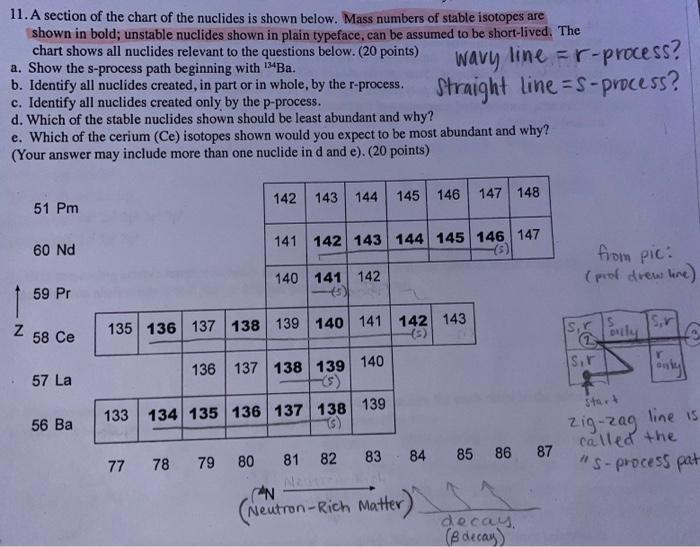 11. A section of the chart of the nuclides is shown below. Mass numbers of stable isotopes are
shown in bold; unstable nuclides shown in plain typeface, can be assumed to be short-lived. The
chart shows all nuclides relevant to the questions below. (20 points)
wavy line = r-process?
a. Show the s-process path beginning with ¹³⁴Ba.
b. Identify all nuclides created, in part or in whole, by the r-process.
straight line = s-process?
c. Identify all nuclides created only by the p-process.
d. Which of the stable nuclides shown should be least abundant and why?
e. Which of the cerium (Ce) isotopes shown would you expect to be most abundant and why?
(Your answer may include more than one nuclide in d and e). (20 points)
51 Pm 142 143 144 145 146 147 148
60 Nd 141 142 143 144 145 146 147
(s)
from pic:
(prof drew line)
59 Pr 140 141 142
(s)
Z
58 Ce 135 136 137 138 139 140 141 142 143
(s)
s,r s only s,r
2 3
57 La 136 137 138 139 140
(s)
s,r r only
start
56 Ba 133 134 135 136 137 138 139
(s)
zig-zag line is
called the
"s-process pat
77 78 79 80 81 82 83 84 85 86 87
N
(Neutron-Rich Matter)
decay
(β decay)